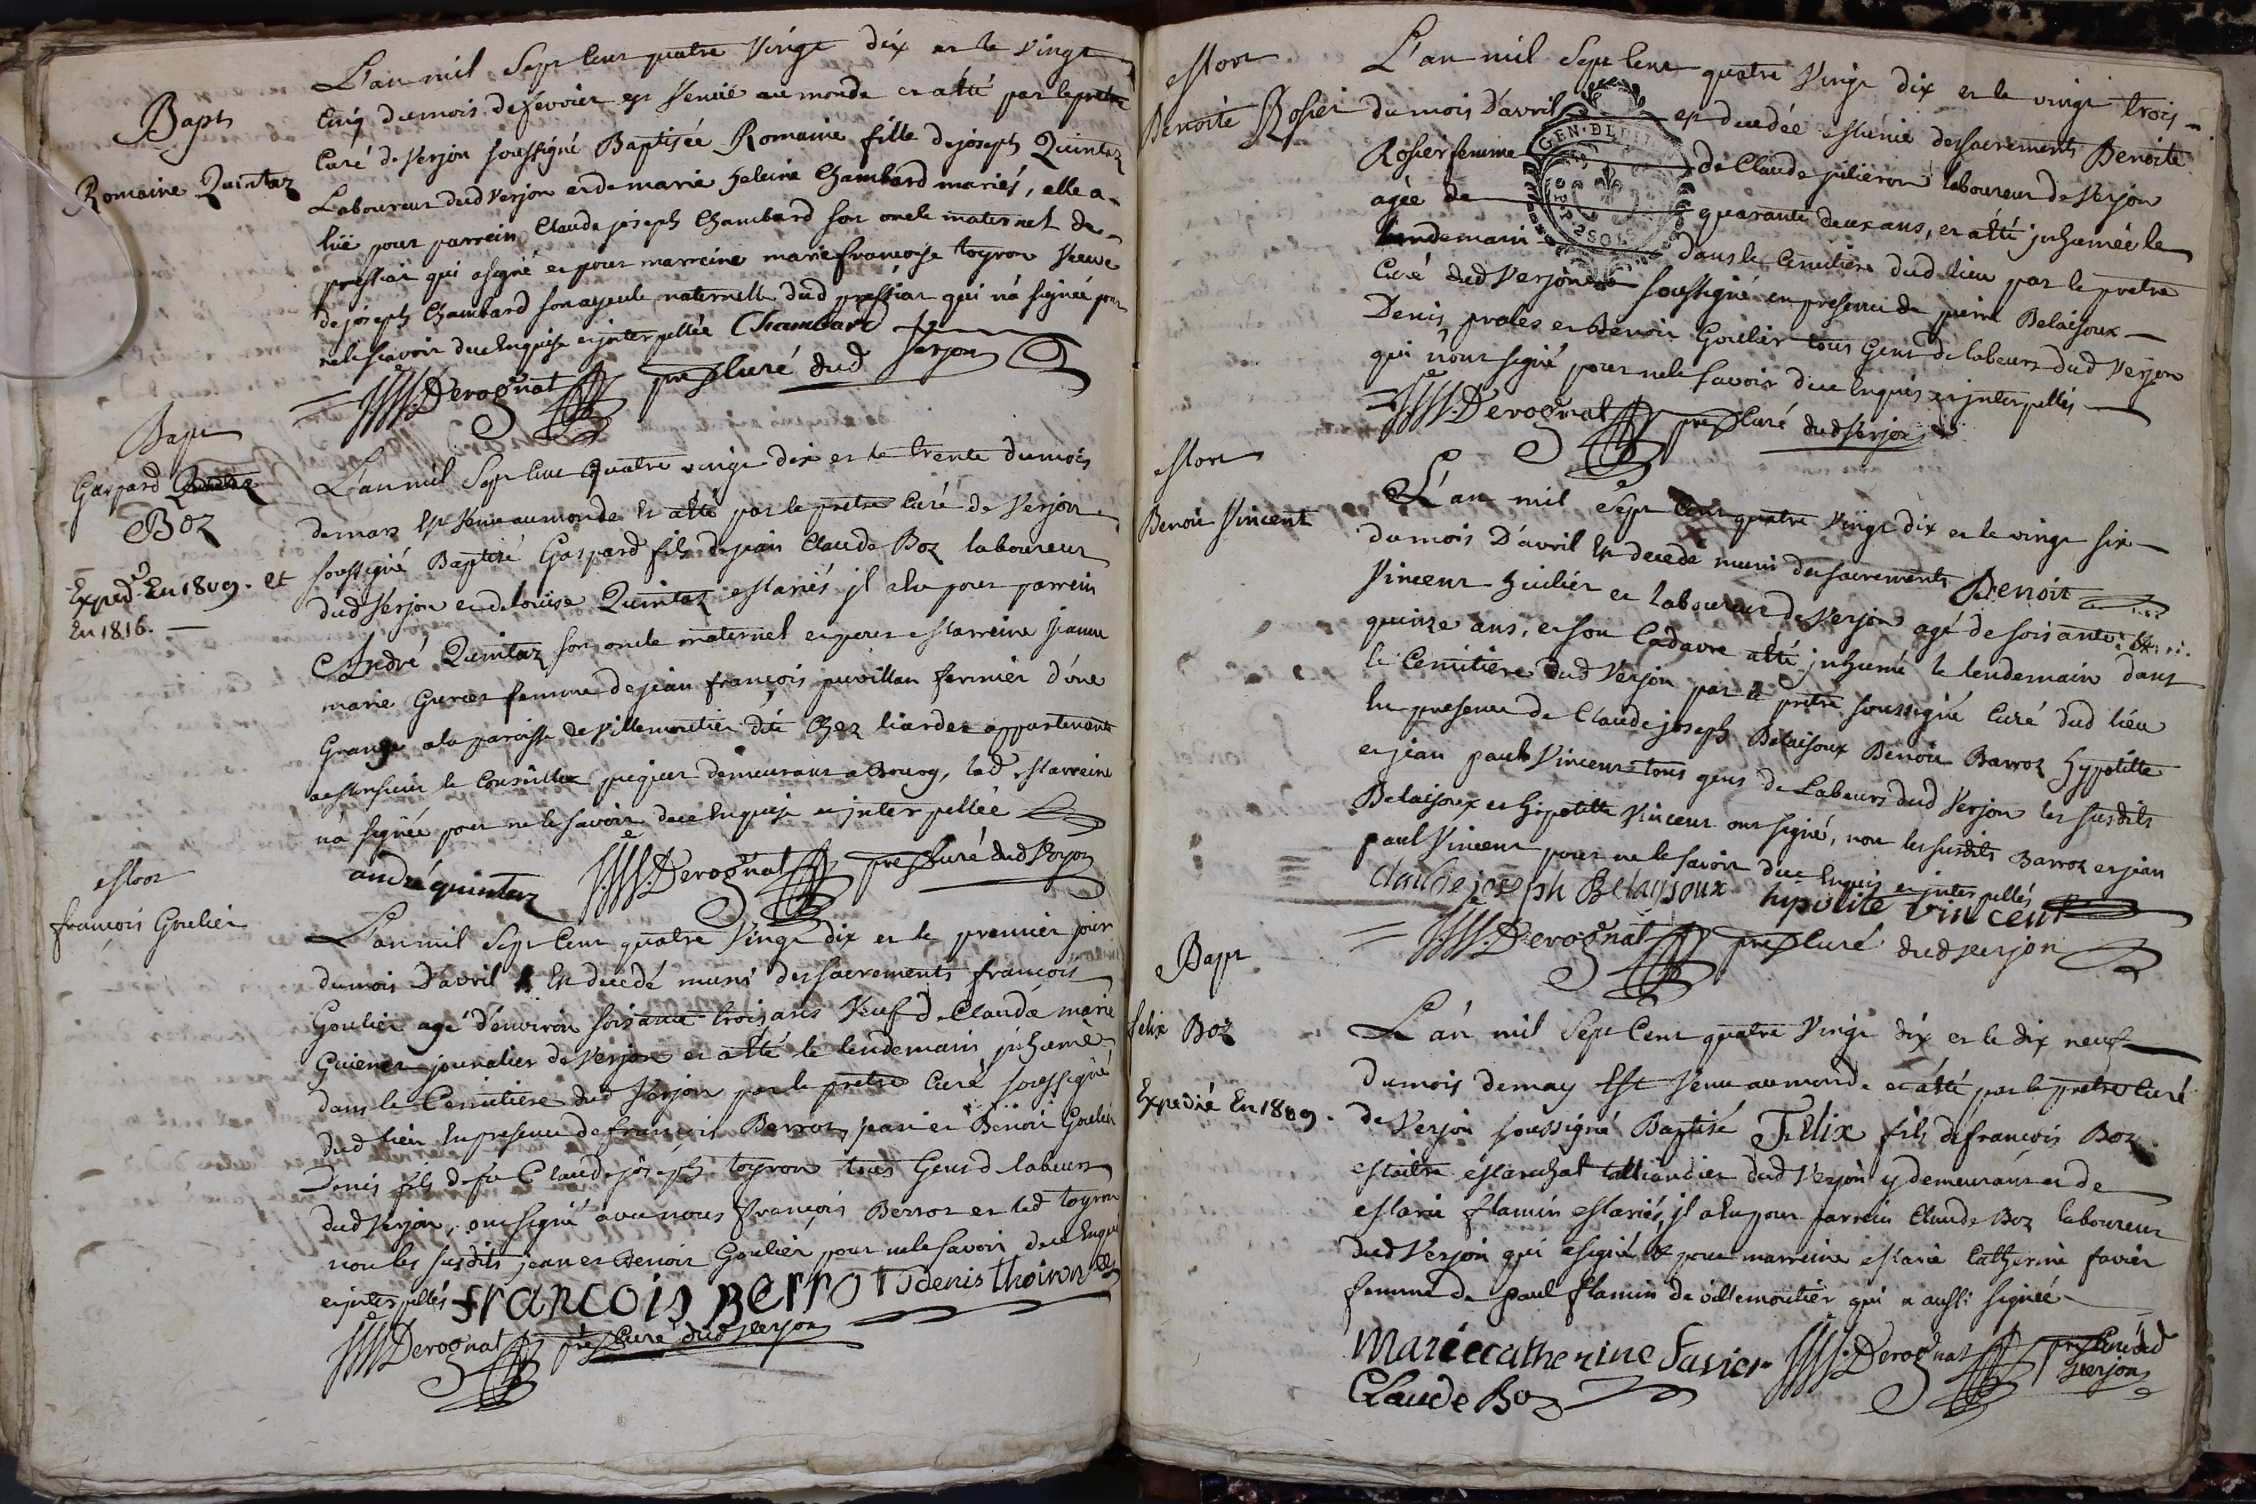 Bapt
Romaine Quintaz
L'an mil sept cent quatre vingt dix et le vingt
cinq du mois de fevrier est venüe au monde et a été par le pretre
Curé de Verjon soussigné Baptisée Romaine fille de joseph Quintaz
Laboureur dud Verjon et de marie heleine Chambard mariés, elle a
hü pour parrein Claude joseph Chambard son oncle maternel de
pressiat qui a signé et pour marreine marie francoise toyron veuve
de joseph Chambard son ayeule maternelle dud pressiat qui n'a signée pour
ne le scavoir de ce Enquise et interpellée Chambard
Derognat ptre Curé dud Verjon
Bapt
Gaspard Quintaz
Boz
Exped. En 1809. et
En 1816.
L'an mil sept cent quatre vingt dix et le trente du mois
de mars Est venu au monde Et a été par le pretre Curé de Verjon
soussigné Baptizé Gaspard fils de jean Claude Boz laboureur
dud Verjon et de loüise Quintaz Mariés jl a hu pour parrein
André Quintaz son oncle maternel et pour Marreine jeanne
marie Gurcet femme de jean françois puvillan fermier d'une
Grange a la paroisse de Villemoutier dit Chez liardet appartenante
a Monsieur le Conseiller demeurant a Bourg, lad Marreine
n'a signée pour ne le savoir de ce Enquise et interpellée
andré quintaz Derognat ptre Curé dud Verjon
Mort
françois Goulier
L'an mil sept Cent quatre Vingt dix et le premier jour
du mois D'avril Est decedé muni des sacrements francois
Goulier agé d'environ soisante trois ans Veuf de Claudae marie
Guienet journalier de Verjon et a été le lendemain jnhumé
dans le Cemitiere dud Verjon par le pretre Curé soussigné
dud lieu En presence de francois Berrot, jean et Benoit Goulier
Denis fils de feu Claude joseph toyron tous Gens de labeurs
dud Verjon, ont signé avec nous françois Berrot et led toyron
non les susdits jean et Benoit Goulier pour ne le savoir de ce Enquis
et jnterpellés francois Berrot denis thoiron
Derognat ptre Curé dud Verjon
Mort
Benoite Rosier
L'an mil sept Cent quatre Vingt dix et le vingt trois
du mois d'avril est decedée Munie des sacrements Benoite
Rosier femme de Claude juliéron laboureur de Verjon
agée de quarante deux ans, et a été jnhumée le
lendemain dans le Cemitiere dud lieu par le pretre
Curé dud Verjon soussigné en presence de pierre Belaisoux
Denis prales et Benoit Goulier tous Gens de labeurs dud Verjon
qui n'ont signé pour ne le savoir de ce Enquis et jnterpellés
Derognat ptre Curé dud Verjon
GEN. D
2 SOLS
Mort
Benoit Vincent
L'an mil Sept Cent quatre Vingt dix et le vingt six
du mois D'avril Est decedé muni des sacrements Benoit
Vincent huilier et laboureur de Verjon agé de soisante et
quinze ans, et son Cadavre a été jnhumé le lendemain dans
le Cemitiere dud Verjon par le pretre soussigné Curé dud lieu
En presence de Claude joseph Belaisoux Benoit Barroz hypolitte
et jean paul Vincent tous gens de Labeurs dud Verjon les susdits
Belaisoux et hypolitte Vincent ont signé, non les susdits Barroz et jean
paul Vincent pour ne le savoir de ce Enquis et jnterpellés
claude joseph Belaysoux hipolite vincent
Derognat ptre Curé dud Verjon
Bapt
felix Boz
Expedié En 1809.
L'an mil Sept Cent quatre Vingt dix et le dix neuf
du mois de may Est Venu au monde et a été par le pretre Curé
de Verjon soussigné Baptisé Felix fils de francois Boz
Maitre Marechal talliandier dud Verjon y demeurant et de
Marie flamin Mariés, jl a hu pour parrein Claude Boz laboureur
dud Verjon qui a signé & pour marreine Marie Catherine favier
femme de paul flamin de villemoutier qui a aussi signée
Marie catherine favier Derognat ptre Curé dud
Claude Boz Verjon